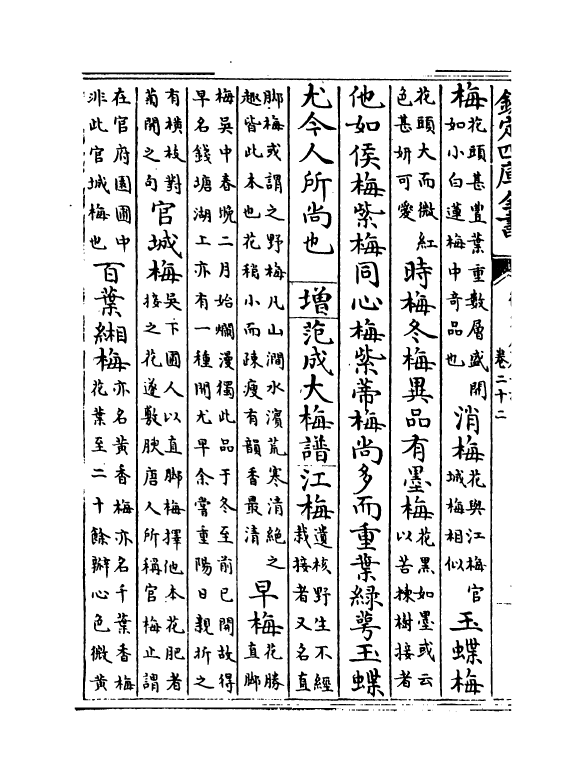 欽定四庫全書
卷二十二
梅花頭甚豐葉重數層盛開如小白蓮梅中奇品也消梅花與江梅官城梅相似玉蝶梅
花頭大而微紅色甚妍可愛時梅冬梅異品有墨梅花黑如墨或云以苦楝樹接者
他如侯梅紫梅同心梅紫蔕梅尚多而重葉緑萼玉蝶
尤今人所尚也 增范成大梅譜江梅遺核野生不經栽接者又名直
脚梅或謂之野梅凡山澗水濱荒寒清絶之趣皆此本也花稍小而疎瘦有韻香最清早梅花勝直脚
梅吳中春晚二月始爛漫獨此品于冬至前已開故得早名錢塘湖上亦有一種開尤早余嘗重陽日親折之
有橫枝對菊開之句官城梅吳下圃人以直脚梅擇他本花肥者接之花遂敷腴唐人所稱官梅止謂
在官府園圃中非此官城梅也百葉緗梅亦名黄香梅亦名千葉香梅花葉至二十餘瓣心色微黄